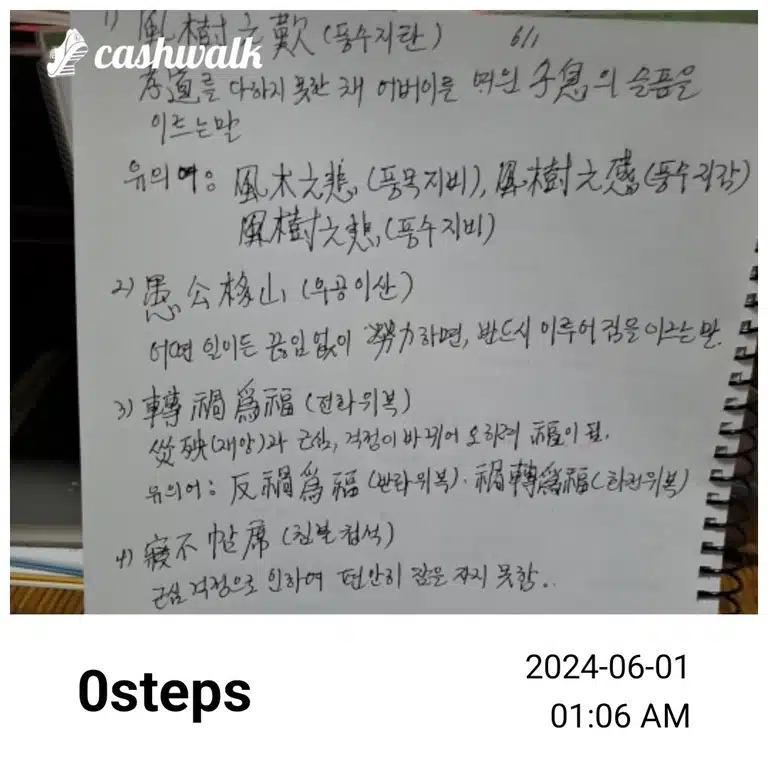 cashwalk
1) 風樹之歎 (풍수지탄) 6/1
孝道를 다하지 못한 채 어버이를 여읜 子息의 슬픔을
이르는말
유의어: 風木之悲, (풍목지비), 風樹之感(풍수지감)
風樹之悲, (풍수지비)
2) 愚公移山 (우공이산)
어떤 일이든 끊임없이 努力하면, 반드시 이루어짐을 이르는 말.
3) 轉禍爲福 (전화위복)
(재앙)과 근심, 걱정이 바뀌어 오히려 福이 됨.
유의어: 反禍爲福(반화위복). 禍轉爲福(화전위복)
4) 寢不 席 (침불첩석)
근심 걱정으로 인하여 편안히 잠을 자지 못함..
0steps
2024-06-01
01:06 AM